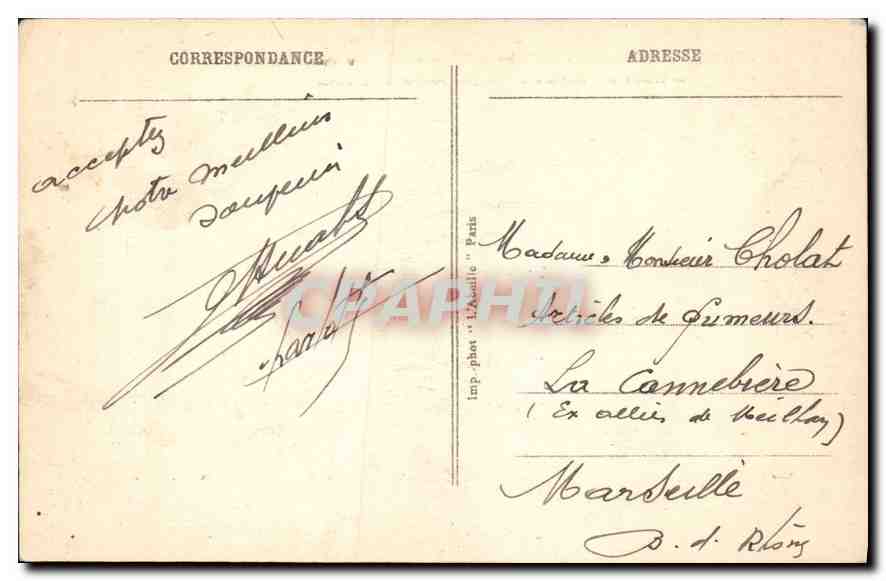 CORRESPONDANCE
acceptez
notre meilleur
souvenir
ADRESSE
Madame & Monsieur Cholat
Articles de fumeurs.
La Cannebière
(Ex allées de Meilhan)
Marseille
B. d. Rhône
Imp. phot "L'Abeille" Paris
CPAPHIL